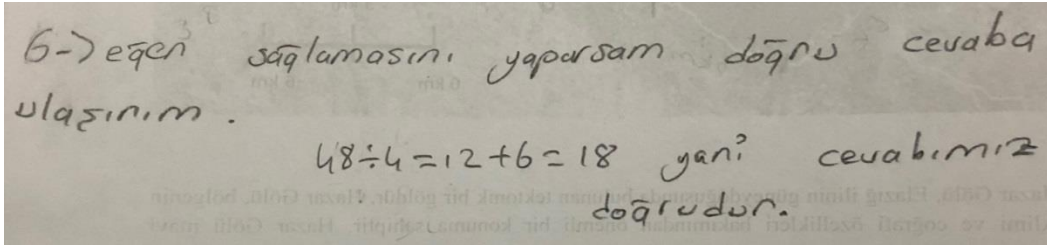 6-) eğer sağlamasını yaparsam doğru cevaba
ulaşırım.
48÷4=12+6=18 yani cevabımız
doğrudur.